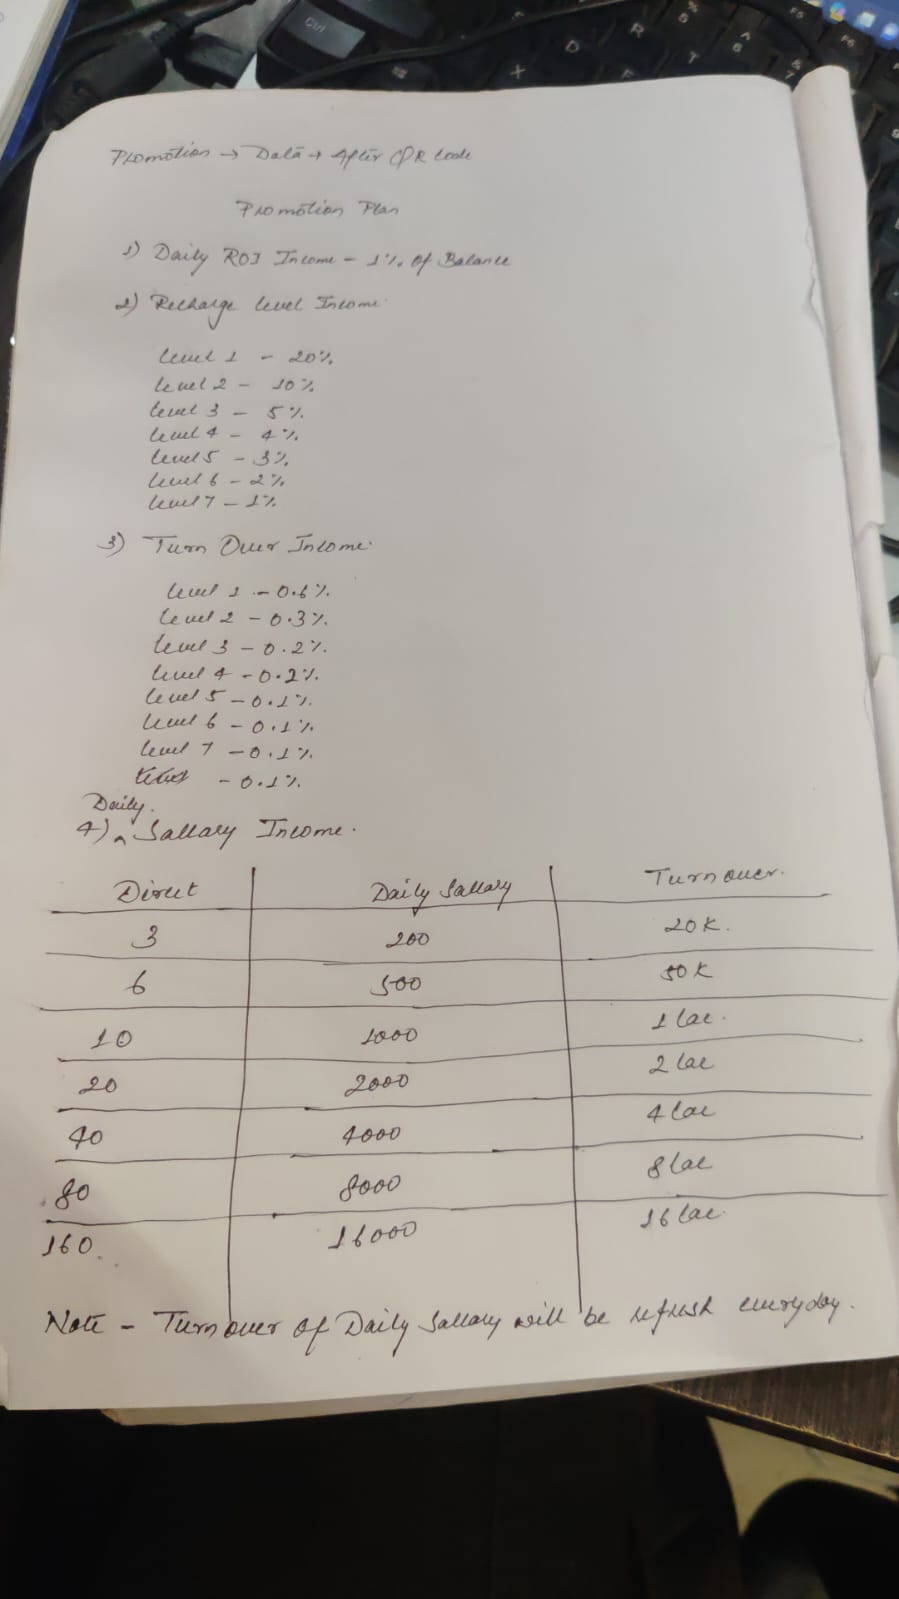 Promotion → Data → After QR Code
Promotion Plan
1) Daily ROI Income - 1% of Balance
2) Recharge level Income.
level 1 - 20%
level 2 - 10%
level 3 - 5%
level 4 - 4%
level 5 - 3%
level 6 - 2%
level 7 - 1%
3) Turn Over Income.
level 1 - 0.6%
level 2 - 0.3%
level 3 - 0.2%
level 4 - 0.2%
level 5 - 0.1%
level 6 - 0.1%
level 7 - 0.1%
- 0.1%
Daily.
4) ^ Sallary Income.
Direct Daily Sallary Turnover.
3 200 20K.
6 500 50K
10 1000 1 lac.
20 2000 2 lac
40 4000 4 lac
80 8000 8 lac
160. 16000 16 lac.
Note - Turnover of Daily Sallary will be refresh everyday.
Ctrl